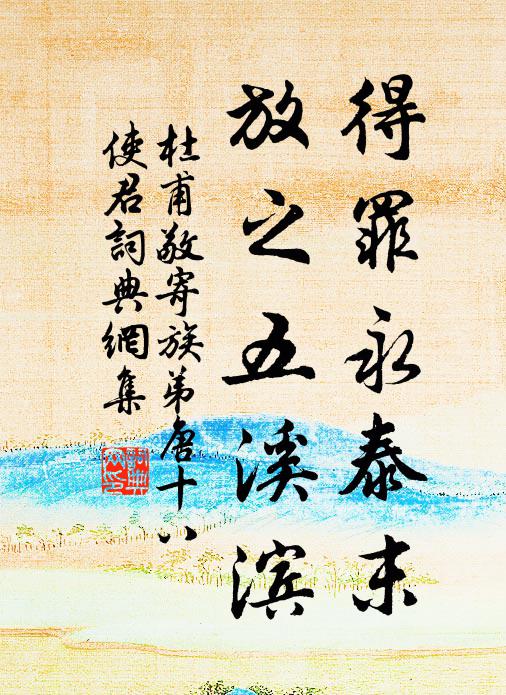 得罪永泰末
放之五溪濱
杜甫敬寄族弟唐十八
使君詞典網集